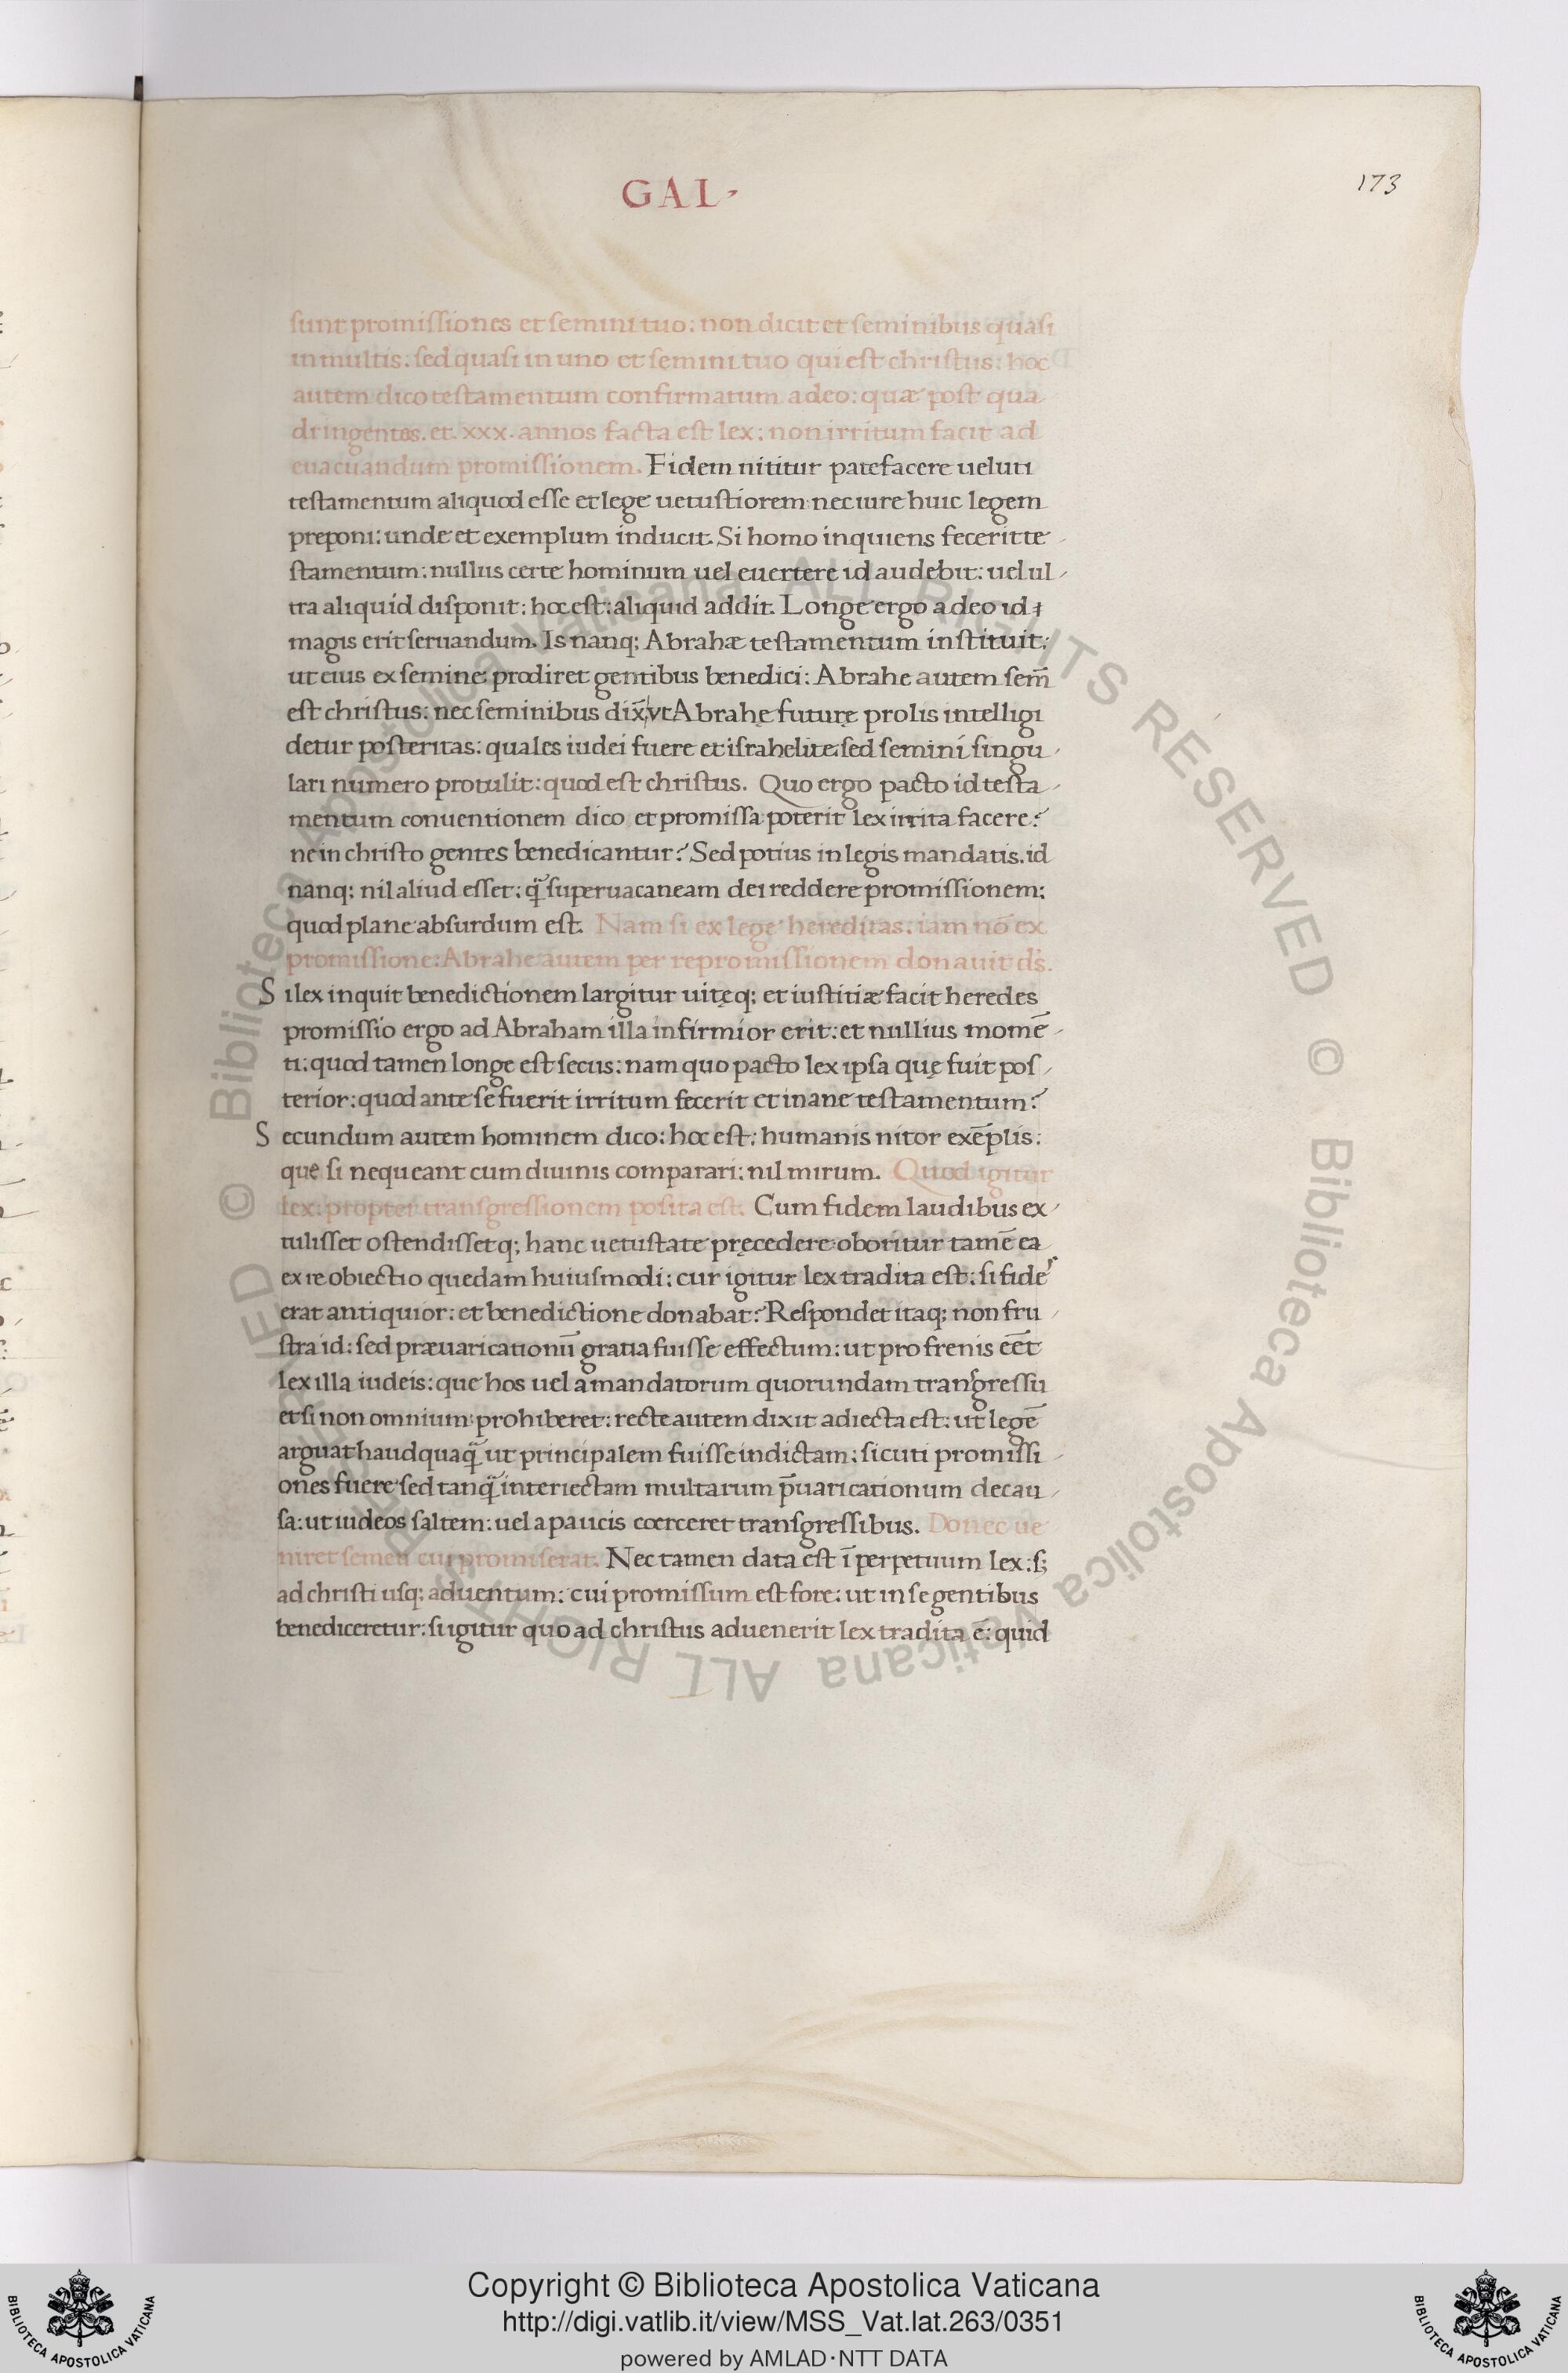 GAL
173
sunt promissiones et semini tuo: non dicit et seminibus quasi
in multis: sed quasi in uno et semini tuo qui est christus: hoc
autem dico testamentum confirmatum a deo: quæ post qua
dringentos. et. xxx. annos facta est lex: non irritum facit ad
euacuandum promissionem. Fidem nititur patefacere ueluti
testamentum aliquod esse et lege uetustiorem: nec iure huic legem
preponi: unde et exemplum inducit. Si homo inquiens fecerit te
stamentum: nullus certe hominum uel euertere id audebit: uel ul
tra aliquid disponit: hoc est: aliquid addit. Longe ergo a deo id
magis erit seruandum. Is nanq; Abrahæ testamentum instituit:
ut eius ex semine: prodiret gentibus benedici: Abrahe autem sem̄
est christus: nec seminibus dix̄ vt Abrahę futurę prolis intelligi
detur posteritas: quales iudei fuere et israhelite: sed semini singu
lari numero protulit: quod est christus. Quo ergo pacto id testa
mentum conuentionem dico et promissa poterit lex irrita facere?
ne in christo gentes benedicantur? Sed potius in legis mandatis. id
nanq; nil aliud esset: q̃ superuacaneam dei reddere promissionem:
quod plane absurdum est. Nam si ex lege hereditas. iam nō ex
promissione: Abrahe autem per repromissionem donauit ds̄.
Si lex inquit benedictionem largitur uitęq; et iustitiæ facit heredes
promissio ergo ad Abraham illa infirmior erit: et nullius momē
ti: quod tamen longe est secus: nam quo pacto lex ipsa quę fuit pos
terior: quod ante se fuerit irritum fecerit et inane testamentum?
Secundum autem hominem dico: hoc est: humanis nitor exēplis:
que si nequeant cum diuinis comparari: nil mirum. Quod igitur
lex: propter transgressionem posita est. Cum fidem laudibus ex
tulisset ostendissetq; hanc uetustate pręcedere: oboritur tamē ea
ex re obiectio quedam huiusmodi: cur igitur lex tradita est: si fide
erat antiquior: et benedictione donabat? Respondet itaq; non fru
stra id: sed præuaricationū gratia fuisse effectum: ut pro frenis eēt
lex illa iudeis: que hos uel a mandatorum quorundam transgressu
et si non omnium: prohiberet: recte autem dixit adiecta est: ut legē
arguat haudquaq̃ ut principalem fuisse indictam: sicuti promissi
ones fuere sed tanq̃ interiectam multarum p̄uaricationum de cau
sa: ut iudeos saltem: uel a paucis coerceret transgressibus. Donec ue
niret semen cui promiserat. Nec tamen data est ī perpetuum lex: s;
ad christi usq; aduentum: cui promissum est fore: ut in se gentibus
benediceretur: si igitur quo ad christus aduenerit lex tradita ē: quid
© Biblioteca Apostolica Vaticana ALL RIGHTS RESERVED © Biblioteca Apostolica Vaticana ALL RIGHTS RESERVED
Copyright © Biblioteca Apostolica Vaticana
http://digi.vatlib.it/view/MSS_Vat.lat.263/0351
powered by AMLAD·NTT DATA
BIBLIOTECA APOSTOLICA VATICANA
BIBLIOTECA APOSTOLICA VATICANA